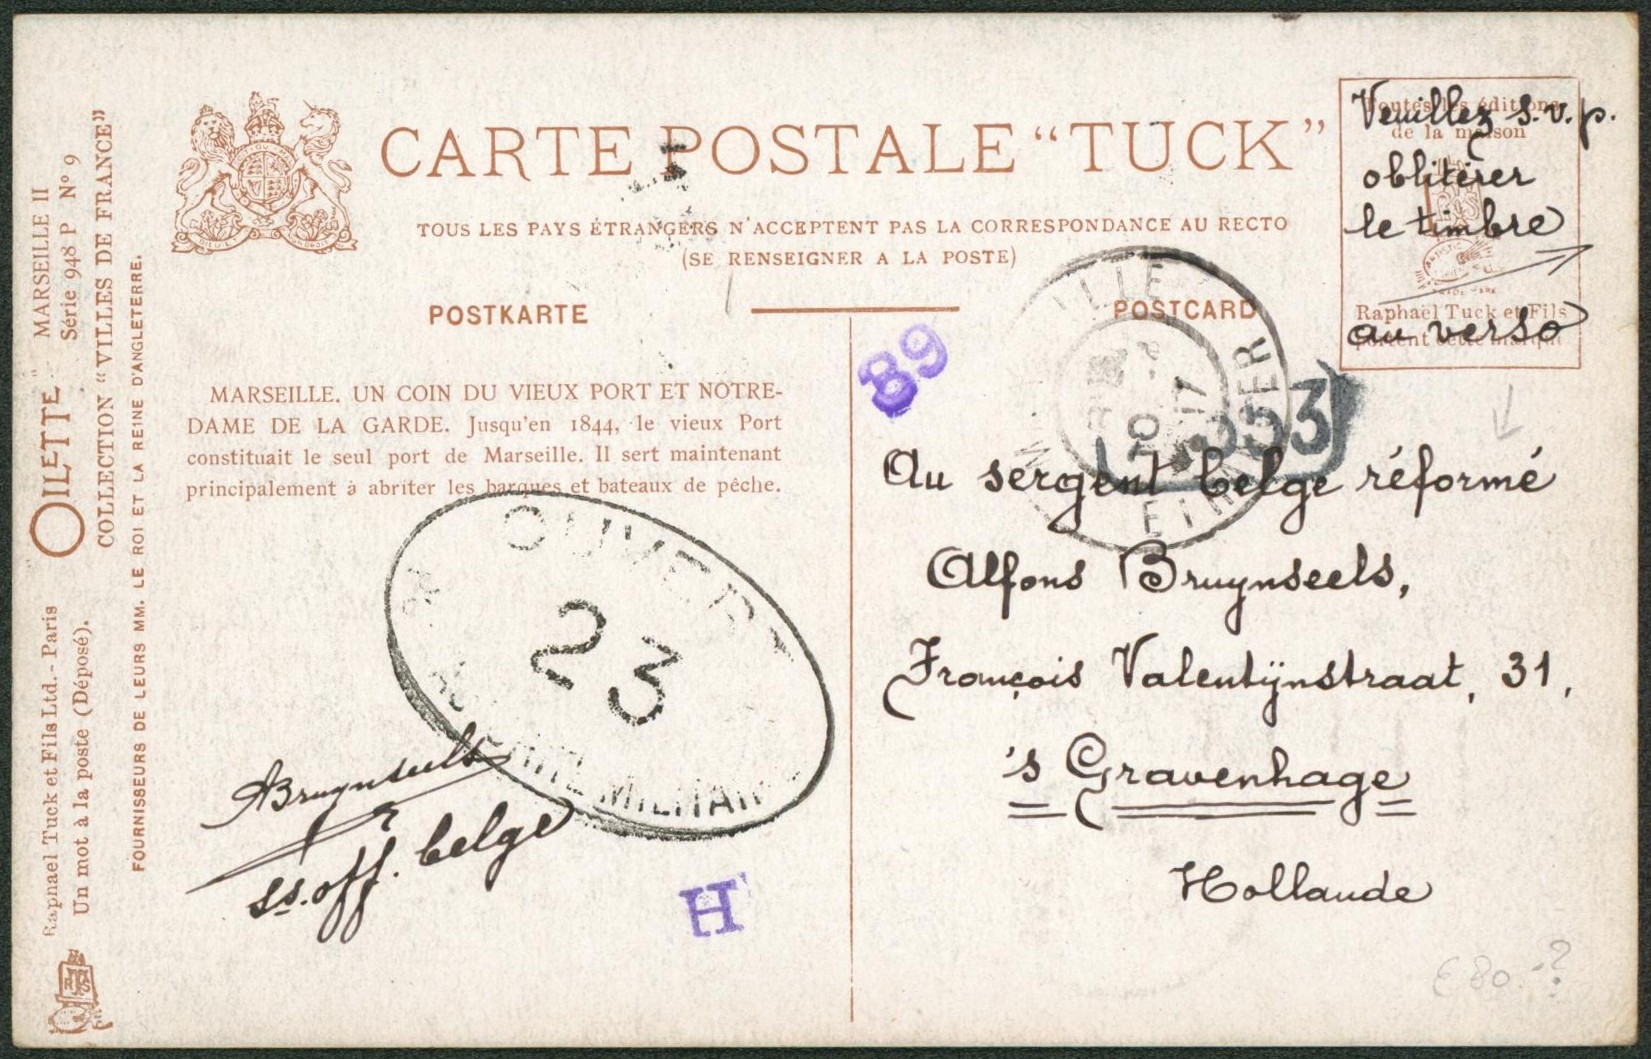 CARTE POSTALE “TUCK”
TOUS LES PAYS ÉTRANGERS N'ACCEPTENT PAS LA CORRESPONDANCE AU RECTO
(SE RENSEIGNER A LA POSTE)
POSTKARTE
POSTCARD
MARSEILLE. UN COIN DU VIEUX PORT ET NOTRE-
DAME DE LA GARDE. Jusqu'en 1844, le vieux Port
constituait le seul port de Marseille. Il sert maintenant
principalement à abriter les barques et bateaux de pêche.
MARSEILLE II
Série 948 P Nº 9
"OILETTE"
COLLECTION “VILLES DE FRANCE”
FOURNISSEURS DE LEURS MM. LE ROI ET LA REINE D'ANGLETERRE.
Raphael Tuck et Fils Ltd. - Paris
Un mot à la poste (Déposé).
Toutes les éditions
de la maison
Raphaël Tuck et Fils
portent cette marque
Veuillez s.v.p.
oblitérer
le timbre
au verso
89
353
OUVERT
23
AUTORITÉ MILITAIRE
ABruynseels
ss.off. belge
H
Au sergent belge réformé
Alfons Bruynseels,
François Valentijnstraat, 31,
's Gravenhage
Hollande
€ 80.-?